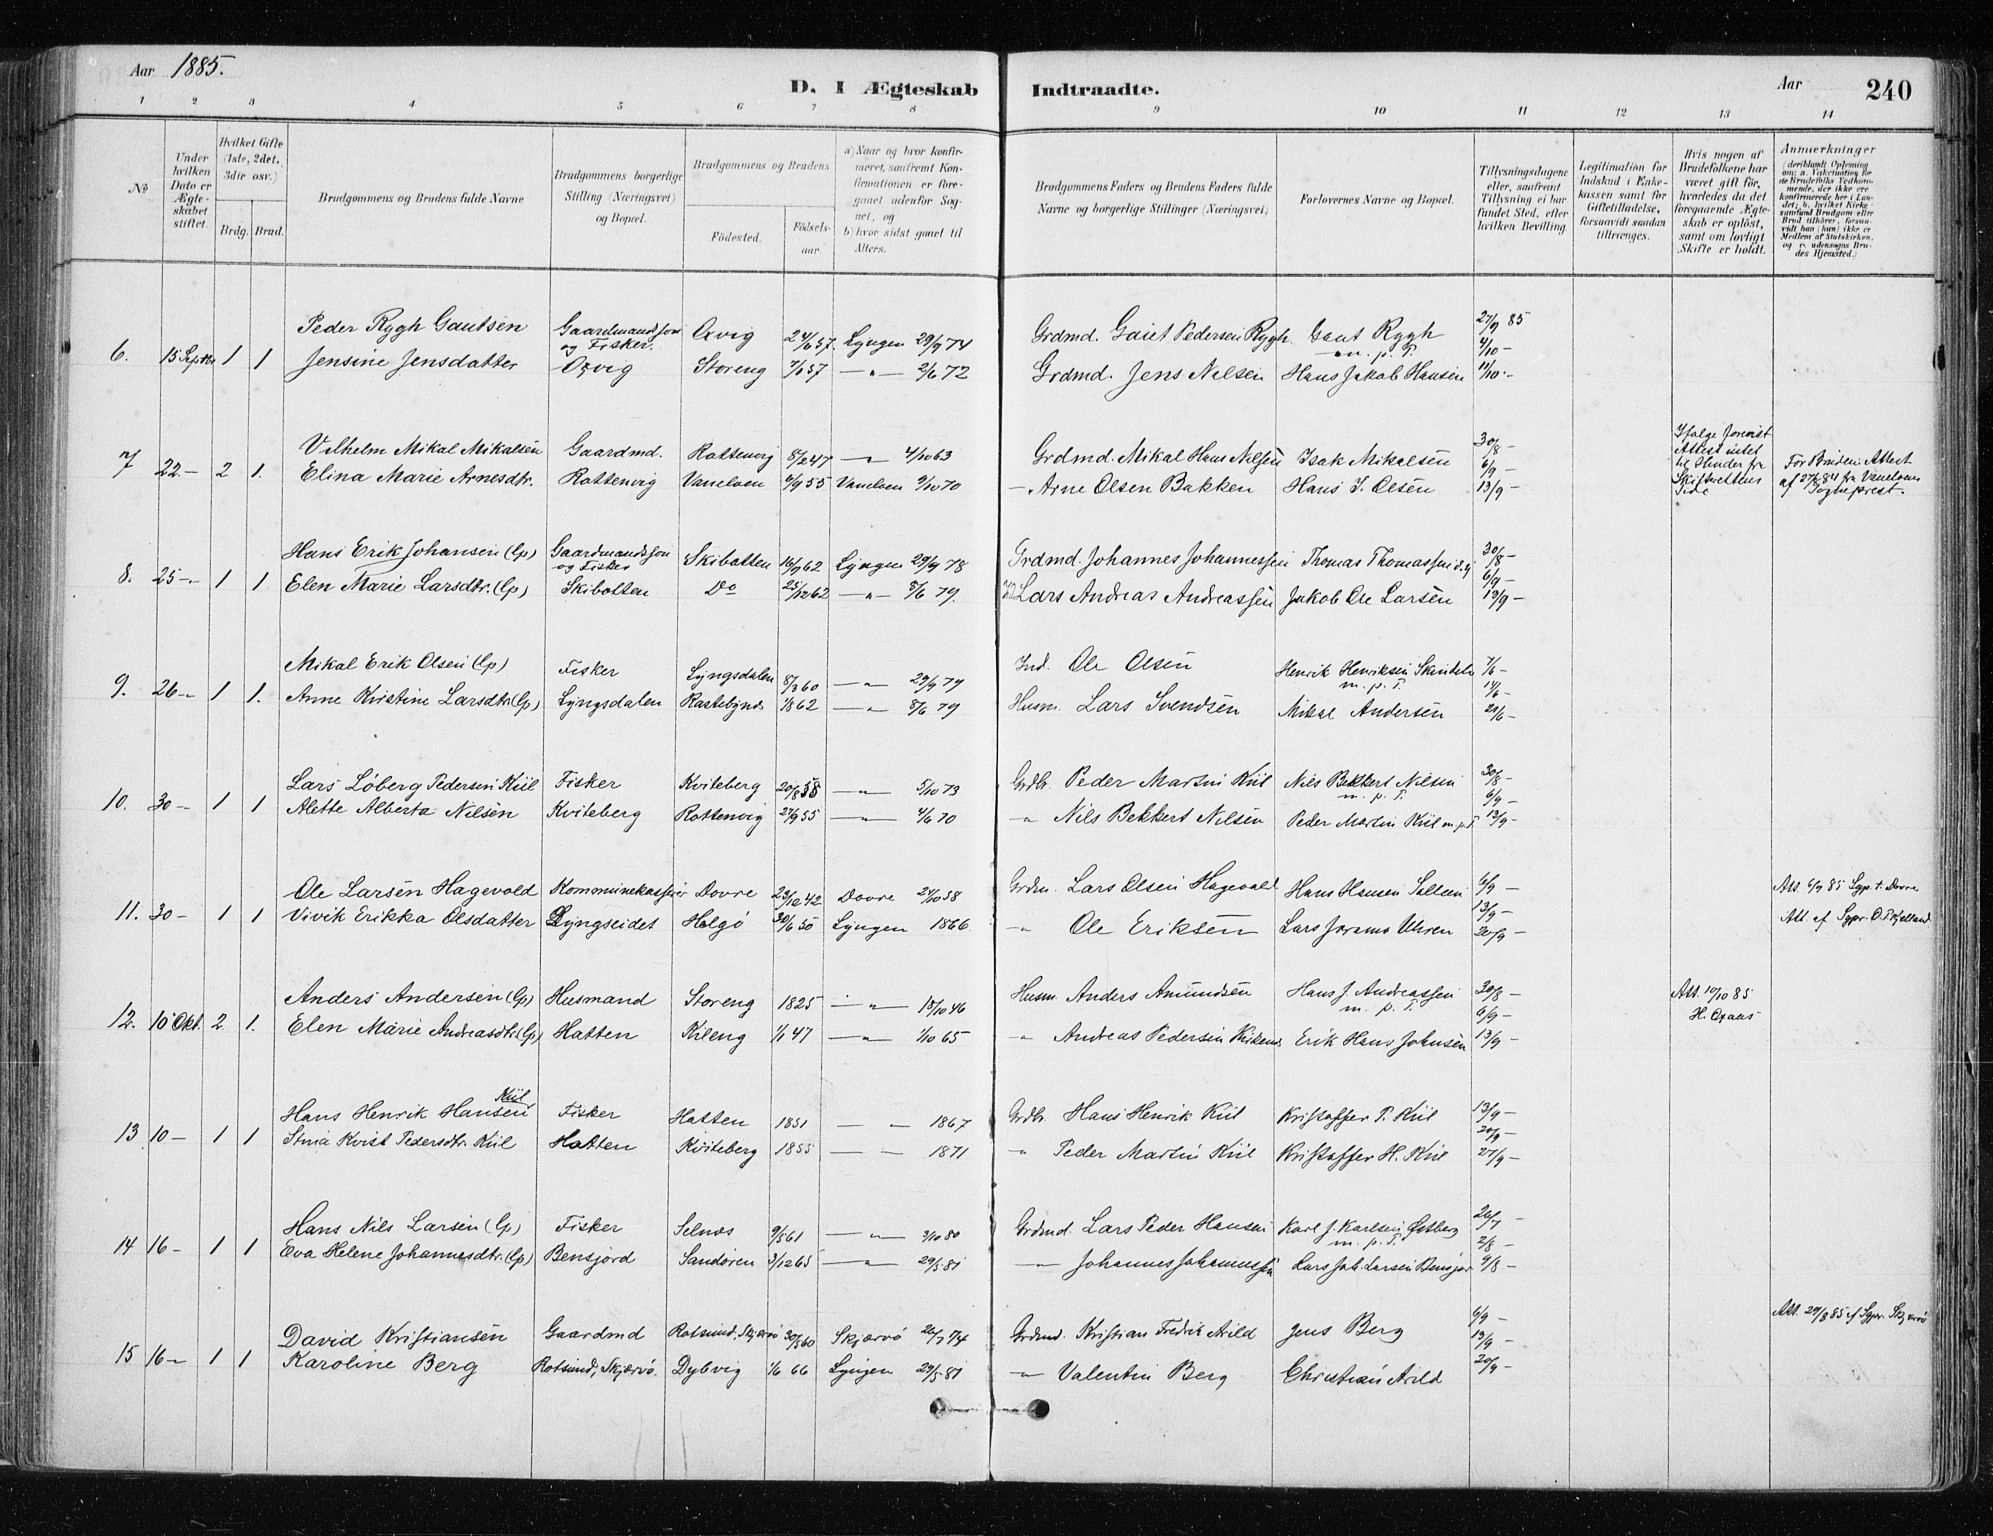 Aar 1885.
D. I Ægteskab Indtraadte.
Aar 240
1 2 3 4 5 6 7 8 9 10 11 12 13 14
No
Under hvilken Dato er Ægteskabet stiftet.
Hvilket Gifte (1ste, 2det, 3die osv.)
Brdg. Brud.
Brudgommens og Brudens fulde Navne
Brudgommens borgerlige Stilling (Næringsvei) og Bopæl.
Brudgommens og Brudens
Födested. Födselsaar.
a) Naar og hvor konfirmeret, samfremt Konfirmationen er foregaaet udenfor Sognet, og
b) hvor sidst gaaet til Alters.
Brudgommens Faders og Brudens Faders fulde Navne og borgerlige Stillinger (Næringsvei)
Forlovernes Navne og Bopæl.
Tillysningsdagene eller, saafremt Tillysning ei har fundet Sted, efter hvilken Bevilling
Legitimation for Indskud i Enkekassen samt for Giftetilladelse, forsaavidt saadan tiltrænges.
Hvis nogen af Brudefolkene har været gift før, hvorledes da det foregaaende Ægteskab er oplöst, samt om lovligt Skifte er holdt.
Anmærkninger
6. 15 Septbr 1 1
Peder Rygh Gautsen Gaardmandssøn og Fisker. Oxvig 24/6 57. Lyngen 29/9 74 Grdmd. Gaut Pedersen Rygh Gaut Rygh m. p. P. 27/9 85
4/10-
Jensine Jensdatter Oxvig Storeng 7/1 57 —"— 2/6 72 Grdmd. Jens Nilsen Hans Jakob Hansen 11/10-
7 22- 2 1.
Vilhelm Mikal Mikalsen Gaardmd. Rottenvig 8/2 47 —"— 4/10 63 Grdmd. Mikal Hans Nilsen Isak Mikalsen 30/8-
6/9-
Elina Marie Arnesdtr. Rottenvig Vanelven 6/9 55 Vanelven 9/10 70 — Arne Olsen Bakken Hans J. Olsen 13/9-
Attest intet til Hinder fra Skifterettens Side
For Bruden: Attest af 27/6 84 fra Vanelvens Sogneprest.
8. 25- 1 1.
Hans Erik Johansen (Lp) Gaardmandssøn og Fisker Skibotten 16/9 62 Lyngen 29/9 78 Grdmd. Johannes Johannessen Thomas Thomassen 30/8-
6/9-
Elen Marie Larsdtr. (Lp) Skibotten Do 25/12 62 —"— 8/6 79. Lars Andreas Andreassen Jakob Ole Larsen 13/9-
9. 26- 1 1.
Mikal Erik Olsen (Lp) Fisker Lyngsdalen 8/3 60 —"— 29/9 79 Ind. Ole Olsen Henrik Henriksen m. p. P. 7/6-
14/6-
Anne Kristine Larsdtr (Lp) Lyngsdalen Rastebynes 1/8 62 —"— 8/6 79 Husm. Lars Svendsen Mikal Andersen 21/6-
10. 30- 1 1
Lars Løberg Pedersen Kiil Fisker Kviteberg 20/8 58 —"— 5/10 73 Grdbr. Peder Martin Kiil Nils Bekkert Nilsen m. p. P. 30/8-
6/9-
Alette Alberta Nilsen Kviteberg Rottenvig 27/9 55 —"— 4/6 70 " Nils Bekkert Nilsen Peder Martin Kiil m. p. P. 13/9-
11. 30- 1 1
Ole Larsen Hagevold Kommunekasserer Dovre 23/12 42 Dovre 24/10 58 Grdm. Lars Olsen Hagevold Hans Hansen 6/9-
13/9-
Vivik Erikka Olsdatter Lyngseidet Helgö 30/6 50 Lyngen 1866 " Ole Eriksen Lars 20/9-
Att. 6/9 85 Sgpr. t. Dovre
Att. af Sgpr. O. T. Kjelland
12. 10 Okt. 2. 1.
Anders Andersen (Lp) Husmand Storeng 1825 —"— 18/10 46 Husm. Anders Amundsen Hans J. Andreassen m. p. P. 30/8-
6/9-
Elen Marie Andreasdtr. (Lp) Hatten Kileng 1/1 47 —"— 1/10 65 " Andreas Pedersen Erik Hans Johnsen 13/9-
Att. 10/10 85
13 10- 1 1
Hans Henrik Hansen Kiil Fisker Hatten 1851 — " 1867 Grdbr. Hans Henrik Kiil Kristoffer P. Kiil 13/9-
20/9-
Stina Kvist Pedersdtr. Kiil Hatten Kviteberg 1855 — — 1871 " Peder Martin Kiil Kristoffer H. Kiil 27/9-
14 16- 1 1
Hans Nils Larsen (Lp) Fisker Selnæs 9/5 61 —"— 3/10 80 Grdmd. Lars Peder Hansen Karl J. Karlsen Østberg m. p. P. 26/7-
2/8-
Eva Helene Johannesdtr. (Lp) Bensjord Sandören 3/12 65 —"— 29/5 81 —"— Johannes Johannessen Lars Joh. Larsen 9/8-
15 16- 1 1
David Kristiansen Gaardmd Rotsund, Skjærvø 30/5 60 Skjærvø 26/7 74 Grdmd. Kristian Fredrik Arild Jens Berg 6/9-
13/9-
Karoline Berg Rotsund, Skjærvø. Dybvig 1/6 66 Lyngen 29/5 81 " Valentin Berg Christian Arild 20/9-
Att. 29/8 85 af Sgpr. Skjærvø